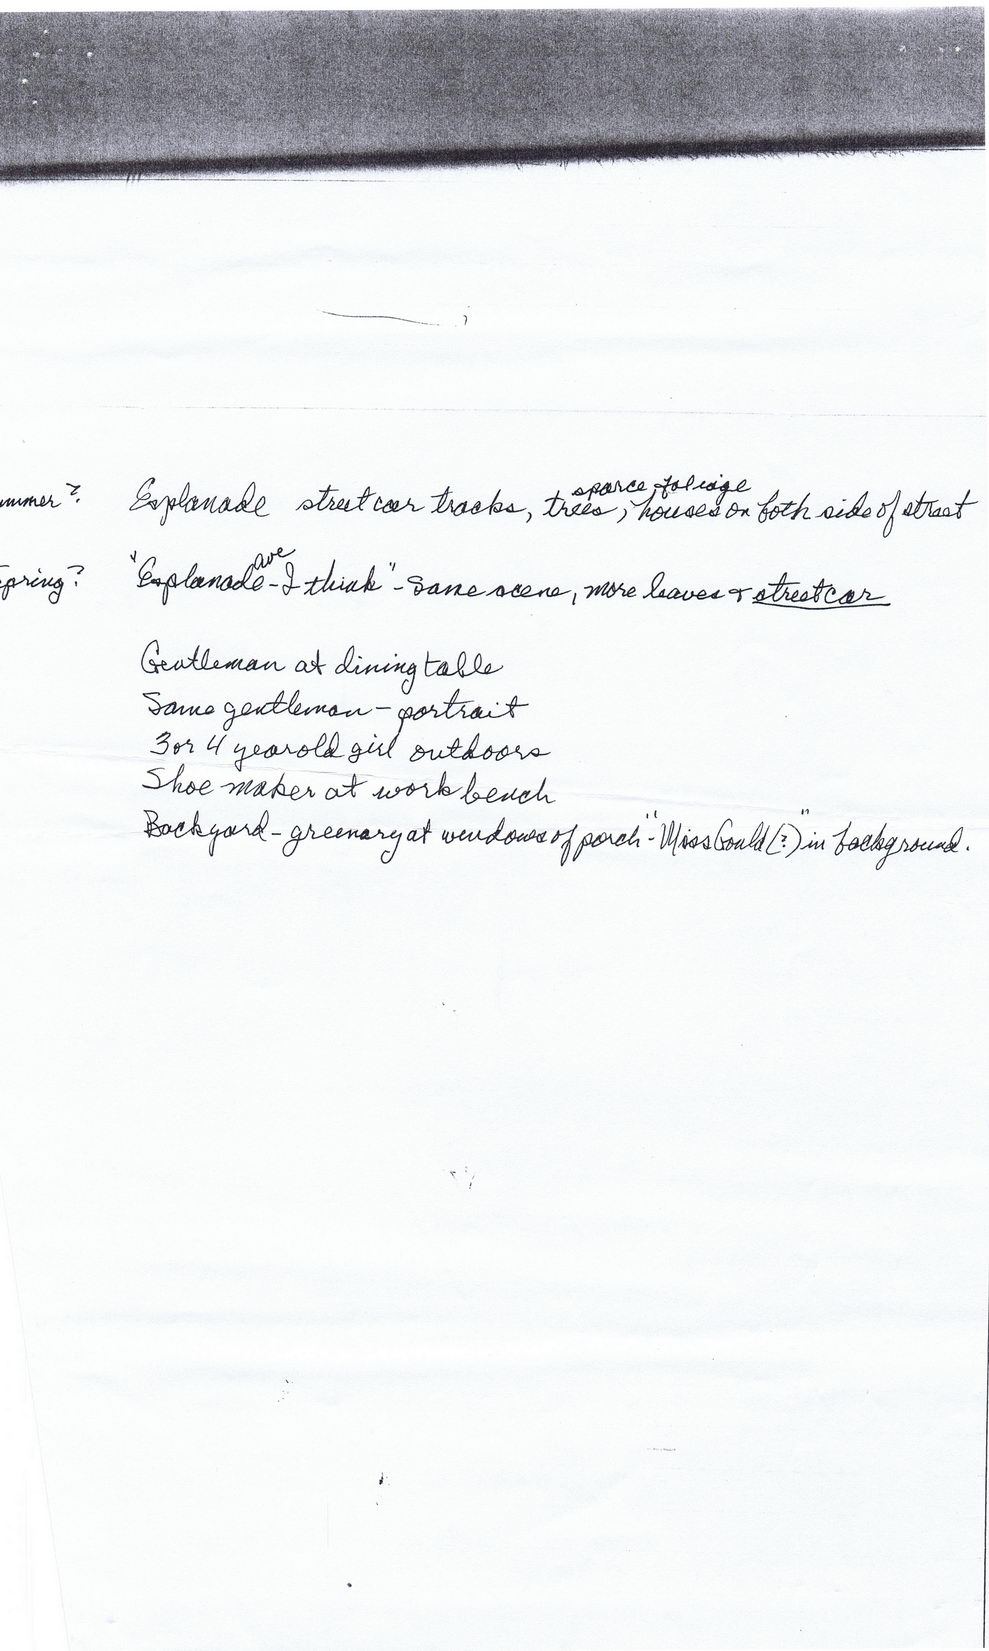 ummer? Esplanade streetcar tracks, trees, sparce foliage houses on both side of street
Spring? "Esplanade ave - I think" - Same scene, more leaves & streetcar
Gentleman at dining table
Same gentleman - portrait
3 or 4 year old girl outdoors
Shoe maker at work bench
Backyard - greenary at windows of porch - "Miss Gould (?)" in background.